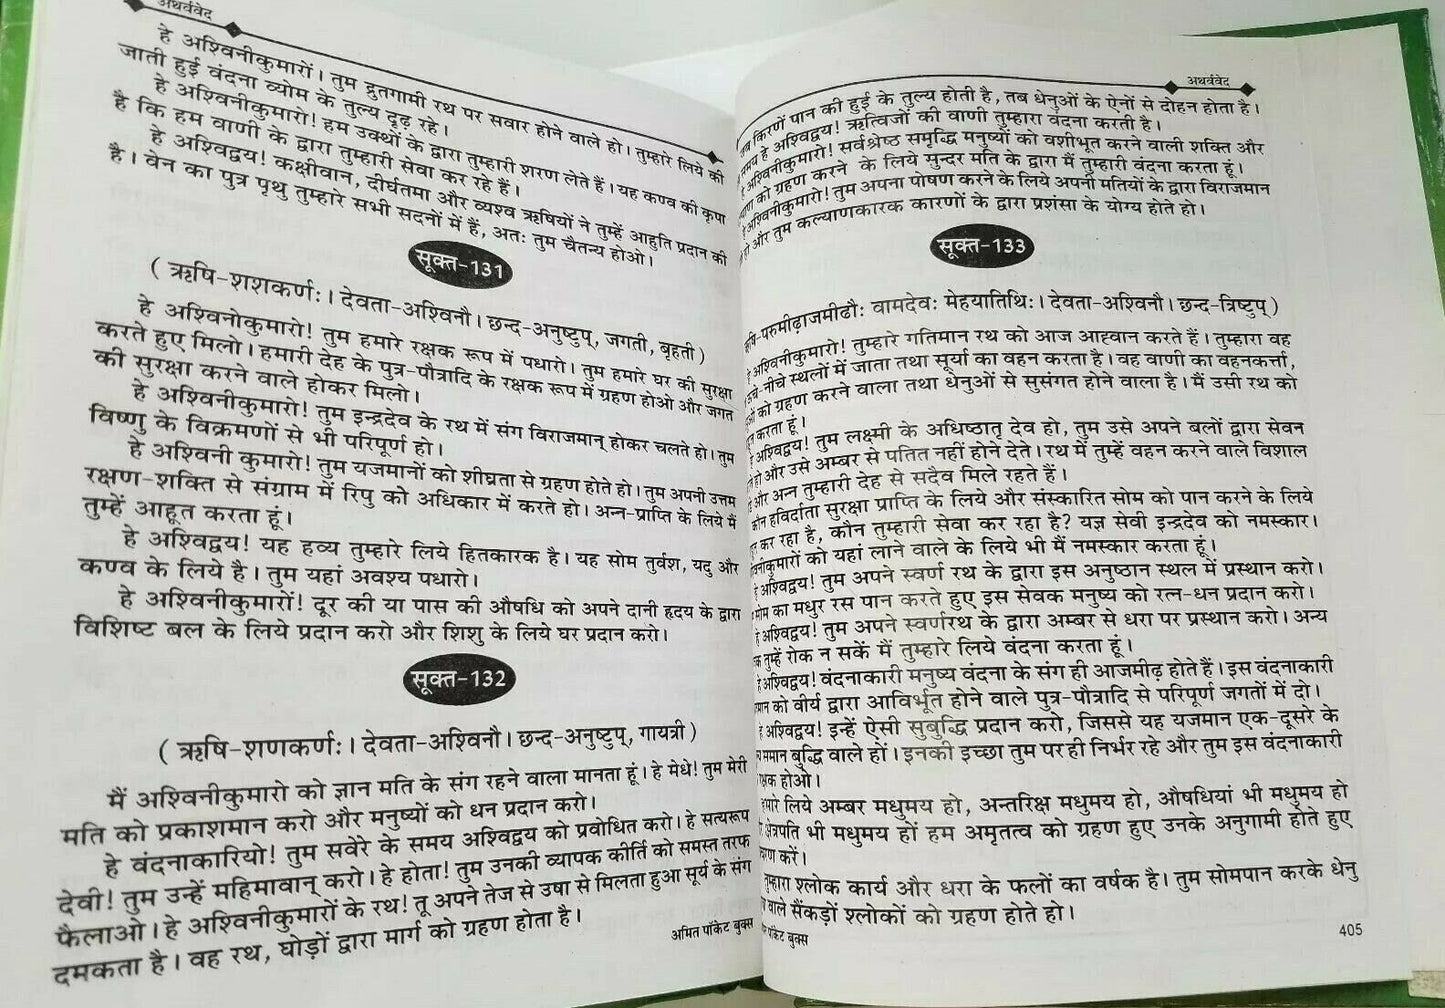 अथर्ववेद
हे अश्विनीकुमारों। तुम द्रुतगामी रथ पर सवार होने वाले हो। तुम्हारे लिये की
जाती हुई वंदना व्योम के तुल्य दृढ़ रहे।
हे अश्विनीकुमारो! हम उक्थों के द्वारा तुम्हारी शरण लेते हैं। यह कण्व की कृपा
है कि हम वाणी के द्वारा तुम्हारी सेवा कर रहे हैं।
हे अश्विद्वय! कक्षीवान, दीर्घतमा और व्यश्व ऋषियों ने तुम्हें आहुति प्रदान की
है। वेन का पुत्र पृथु तुम्हारे सभी सदनों में हैं, अतः तुम चैतन्य होओ।
सूक्त-131
( ऋषि-शशकर्णः। देवता-अश्विनौ। छन्द-अनुष्टुप्, जगती, बृहती)
हे अश्विनोकुमारो! तुम हमारे रक्षक रूप में पधारो। तुम हमारे घर की सुरक्षा
करते हुए मिलो। हमारी देह के पुत्र-पौत्रादि के रक्षक रूप में ग्रहण होओ और जगत
की सुरक्षा करने वाले होकर मिलो।
हे अश्विनीकुमारो! तुम इन्द्रदेव के रथ में संग विराजमान् होकर चलते हो। तुम
विष्णु के विक्रमणों से भी परिपूर्ण हो।
हे अश्विनी कुमारो! तुम यजमानों को शीघ्रता से ग्रहण होते हो। तुम अपनी उत्तम
रक्षण-शक्ति से संग्राम में रिपु को अधिकार में करते हो। अन्न-प्राप्ति के लिये मैं
तुम्हें आहूत करता हूं।
हे अश्विद्वय! यह हव्य तुम्हारे लिये हितकारक है। यह सोम तुर्वश, यदु और
कण्व के लिये है। तुम यहां अवश्य पधारो।
हे अश्विनीकुमारों! दूर की या पास की औषधि को अपने दानी हृदय के द्वारा
विशिष्ट बल के लिये प्रदान करो और शिशु के लिये घर प्रदान करो।
सूक्त-132
( ऋषि-शणकर्णः। देवता-अश्विनौ। छन्द-अनुष्टुप्, गायत्री)
मैं अश्विनीकुमारो को ज्ञान मति के संग रहने वाला मानता हूं। हे मेधे! तुम मेरी
मति को प्रकाशमान करो और मनुष्यों को धन प्रदान करो।
हे वंदनाकारियो! तुम सवेरे के समय अश्विद्वय को प्रवोधित करो। हे सत्यरूप
देवी! तुम उन्हें महिमावान् करो। हे होता! तुम उनकी व्यापक कीर्ति को समस्त तरफ
फैलाओ। हे अश्विनीकुमारों के रथ! तू अपने तेज से उषा से मिलता हुआ सूर्य के संग
दमकता है। वह रथ, घोड़ों द्वारा मार्ग को ग्रहण होता है।
अमित पॉकेट बुक्स
अथर्ववेद
किरणें पान की हुई के तुल्य होती है, तब धेनुओं के ऐनों से दोहन होता है।
हे अश्विद्वय! ऋत्विजों की वाणी तुम्हारा वंदना करती है।
अश्विनीकुमारो! सर्वश्रेष्ठ समृद्धि मनुष्यों को वशीभूत करने वाली शक्ति और
को ग्रहण करने के लिये सुन्दर मति के द्वारा मैं तुम्हारी वंदना करता हूं।
अश्विनीकुमारो! तुम अपना पोषण करने के लिये अपनी मतियों के द्वारा विराजमान
हो और तुम कल्याणकारक कारणों के द्वारा प्रशंसा के योग्य होते हो।
सूक्त-133
षि-परुमीढ़ाजमीढौः वामदेवः मेहयातिथिः। देवता-अश्विनौ। छन्द-त्रिष्टुप्)
हे अश्विनीकुमारो! तुम्हारे गतिमान रथ को आज आह्वान करते हैं। तुम्हारा वह
-नीचे स्थलों में जाता तथा सूर्या का वहन करता है। वह वाणी का वहनकर्त्ता,
को ग्रहण करने वाला तथा धेनुओं से सुसंगत होने वाला है। मैं उसी रथ को
करता हूं।
अश्विद्वय! तुम लक्ष्मी के अधिष्ठातृ देव हो, तुम उसे अपने बलों द्वारा सेवन
हो और उसे अम्बर से पतित नहीं होने देते। रथ में तुम्हें वहन करने वाले विशाल
और अन्न तुम्हारी देह से सदैव मिले रहते हैं।
कौन हविर्दाता सुरक्षा प्राप्ति के लिये और संस्कारित सोम को पान करने के लिये
कर रहा है, कौन तुम्हारी सेवा कर रहा है? यज्ञ सेवी इन्द्रदेव को नमस्कार।
कुमारों को यहां लाने वाले के लिये भी मैं नमस्कार करता हूं।
अश्विद्वय! तुम अपने स्वर्ण रथ के द्वारा इस अनुष्ठान स्थल में प्रस्थान करो।
सोम का मधुर रस पान करते हुए इस सेवक मनुष्य को रत्न-धन प्रदान करो।
हे अश्विद्वय! तुम अपने स्वर्णरथ के द्वारा अम्बर से धरा पर प्रस्थान करो। अन्य
तुम्हें रोक न सकें मैं तुम्हारे लिये वंदना करता हूं।
हे अश्विद्वय! वंदनाकारी मनुष्य वंदना के संग ही आजमीढ़ होते हैं। इस वंदनाकारी
को वीर्य द्वारा आविर्भूत होने वाले पुत्र-पौत्रादि से परिपूर्ण जगतों में दो।
हे अश्विद्वय! इन्हें ऐसी सुबुद्धि प्रदान करो, जिससे यह यजमान एक-दूसरे के
समान बुद्धि वाले हों। इनकी इच्छा तुम पर ही निर्भर रहे और तुम इस वंदनाकारी
क्षक होओ।
हमारे लिये अम्बर मधुमय हो, अन्तरिक्ष मधुमय हो, औषधियां भी मधुमय हो
क्षेत्रपति भी मधुमय हों हम अमृतत्व को ग्रहण हुए उनके अनुगामी होते हुए
करें।
तुम्हारा श्लोक कार्य और धरा के फलों का वर्षक है। तुम सोमपान करके धेनु
वाले सैंकड़ों श्लोकों को ग्रहण होते हो।
पॉकेट बुक्स
405